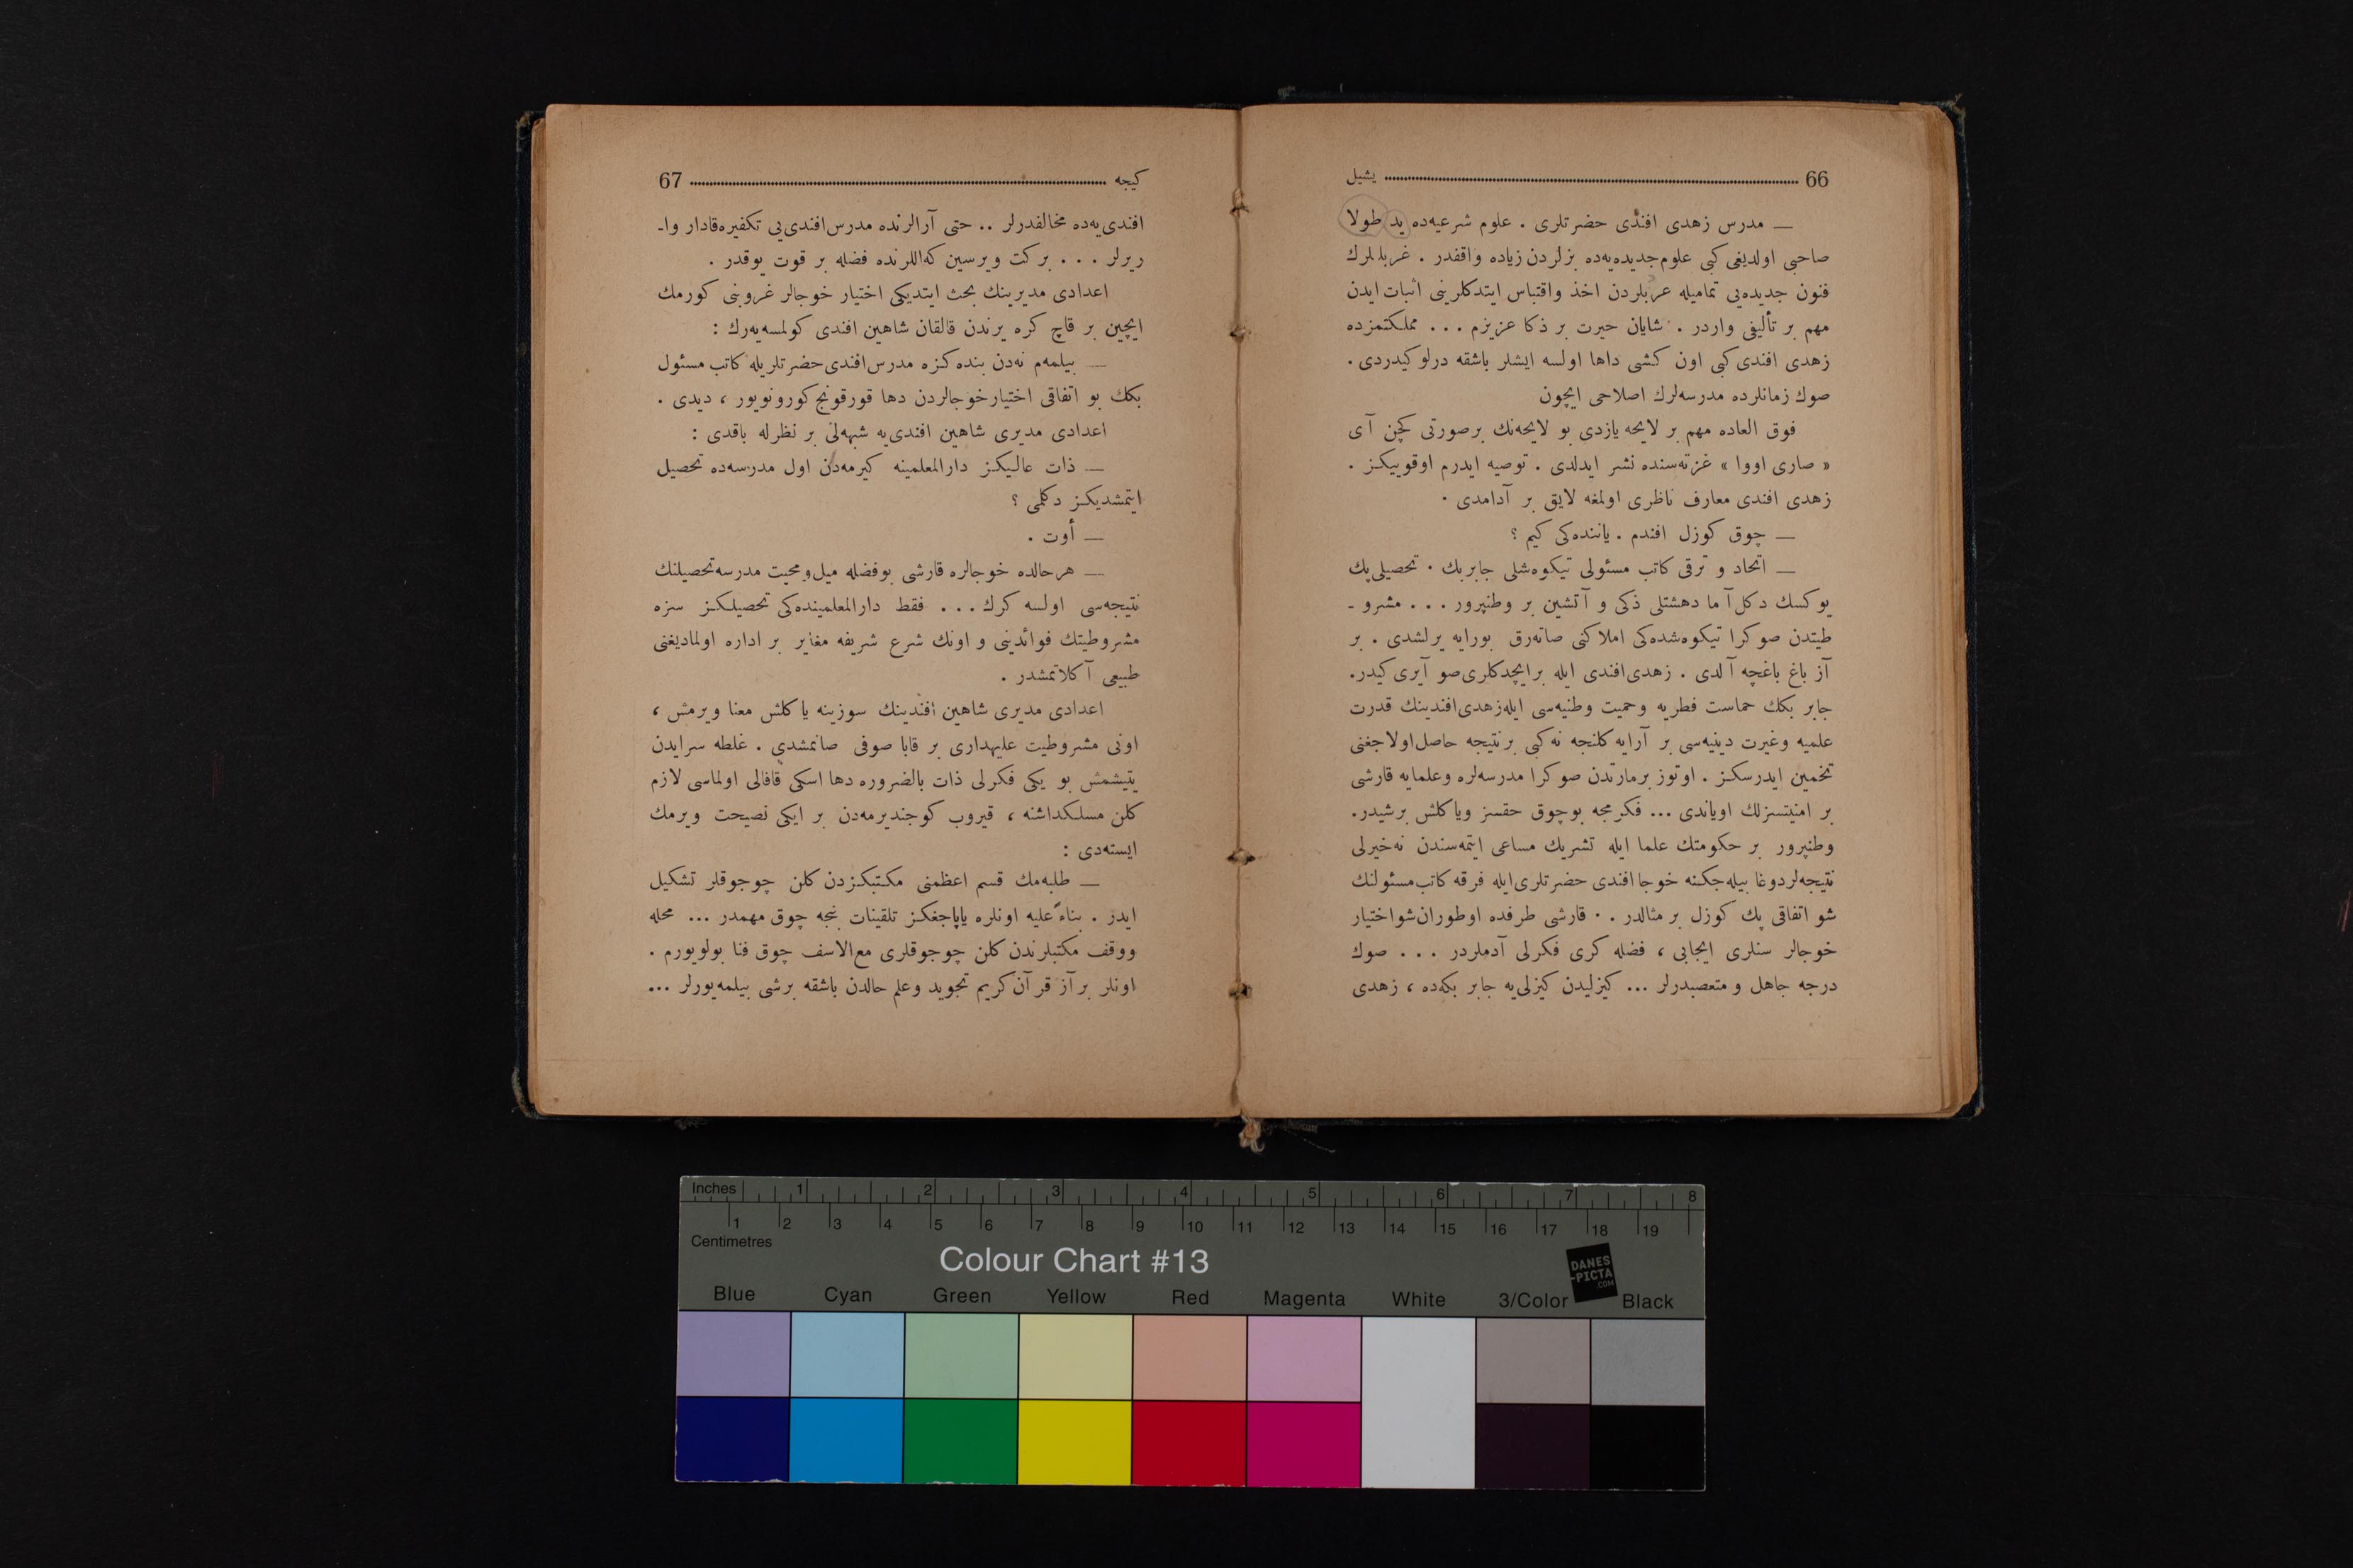 66 يشيل
— مدرس زهدى افندى حضرتلرى . علوم شرعيه‌ده يد طولا
صاحبى اولديغى كبى علوم جديده‌يه‌ده بزلردن زياده واقفدر . غربليلرك
فنون جديده‌يى تماميله عربلردن اخذ واقتباس ايتدكلرينى اثبات ايدن
مهم بر تأليفى واردر . شايان حيرت بر ذكا عزيزم ... مملكتمزده
زهدى افندى كبى اون كشى داها اولسه ايشلر باشقه درلو كيدردى .
صوك زمانلرده مدرسه‌لرك اصلاحى ايچون
فوق العاده مهم بر لايحه يازدى بو لايحه‌نك برصورتى كچن آى
« صارى اووا » غزته‌سنده نشر ايدلدى . توصيه ايدرم اوقوييكز .
زهدى افندى معارف ناظرى اولمغه لايق بر آدامدى .
— چوق كوزل افندم . ياننده‌كى كيم ؟
— اتحاد و ترقى كاتب مسئولى تيكوه‌شلى جابربك . تحصيلى پك
يوكسك دكل آما دهشتلى ذكى و آتشين بر وطنپرور ... مشرو ـ
طيتدن صوكرا تيكوه‌شده‌كى املاكنى صاته‌رق بورايه يرلشدى . بر
آز باغ باغچه آلدى . زهدى‌افندى ايله برايچدكلرى‌صو آيرى كيدر.
جابر بكك حماست فطريه وحميت وطنيه‌سى ايله‌زهدى‌افندينك قدرت
علميه وغيرت دينيه‌سى بر آرايه كلنجه نه كبى برنتيجه حاصل‌اولاجغنى
تخمين ايدرسكز . اوتوز برمارتدن صوكرا مدرسه‌لره وعلمايه قارشى
بر امنيتسزلك اوياندى ... فكرمجه بوچوق حقسز وياكلش برشيدر.
وطنپرور بر حكومتك علما ايله تشريك مساعى ايتمه‌سندن نه‌خيرلى
نتيجه‌لردوغا بيله‌جكنه خوجا افندى حضرتلرى‌ايله فرقه كاتب‌مسئولنك
شو اتفاقى پك كوزل بر مثالدر .. قارشى طرفده اوطوران‌شواختيار
خوجالر سنلرى ايجابى ، فضله كرى فكرلى آدملردر ... صوك
درجه جاهل و متعصبدرلر ... كيزليدن كيزلى‌يه جابر بكه‌ده ، زهدى
كيجه 67
افندى‌يه‌ده مخالفدرلر .. حتى آرالرنده مدرس‌افندى‌يى تكفيره‌قادار واـ
ريرلر ... بركت ويرسين كه‌اللرنده فضله بر قوت يوقدر .
اعدادى مديرينك بحث ايتديكى اختيار خوجالر غروبنى كورمك
ايچين بر قاچ كره يرندن قالقان شاهين افندى كولمسه‌يه‌رك :
— بيلمه‌م نه‌دن بنده‌كزه مدرس‌افندى‌حضرتلريله كاتب مسئول
بكك بو اتفاقى اختيارخوجالردن دها قورقونج‌كورونويور ، ديدى .
اعدادى مديرى شاهين افندى‌يه شبهه‌لى بر نظرله باقدى :
— ذات عاليكز دارالمعلمينه كيرمه‌دن اول مدرسه‌ده تحصيل
ايتمشديكز دكلمى ؟
— أوت .
— هرحالده خوجالره قارشى بوفضله ميل‌ومحبت مدرسه‌تحصيلنك
نتيجه‌سى اولسه كرك ... فقط دارالمعلمينده‌كى تحصيلكز سزه
مشروطيتك فوائدينى و اونك شرع شريفه مغاير بر اداره اولماديغنى
طبيعى آكلاتمشدر .
اعدادى مديرى شاهين افندينك سوزينه ياكلش معنا ويرمش ،
اونى مشروطيت عليهدارى بر قابا صوفى صانمشدى . غلطه سرايدن
يتيشمش بو يكى فكرلى ذات بالضروره دها اسكى قافالى اولماسى لازم
كلن مسلكداشنه ، قيروب كوجنديرمه‌دن بر ايكى نصيحت ويرمك
ايسته‌دى :
— طلبه‌مك قسم اعظمنى مكتبكزدن كلن چوجوقلر تشكيل
ايدر . بناءً عليه اونلره ياپاجغكز تلقينات بنجه چوق مهمدر ... محله
ووقف مكتبلرندن كلن چوجوقلرى مع‌الاسف چوق فنا بولويورم .
اونلر برآز قرآن‌كريم تجويد وعلم حالدن باشقه برشى بيلمه‌يورلر ...
Inches 1 2 3 4 5 6 7 8
1 2 3 4 5 6 7 8 9 10 11 12 13 14 15 16 17 18 19
Centimetres
Colour Chart #13
DANES
-PICTA
.COM
Blue Cyan Green Yellow Red Magenta White 3/Color Black